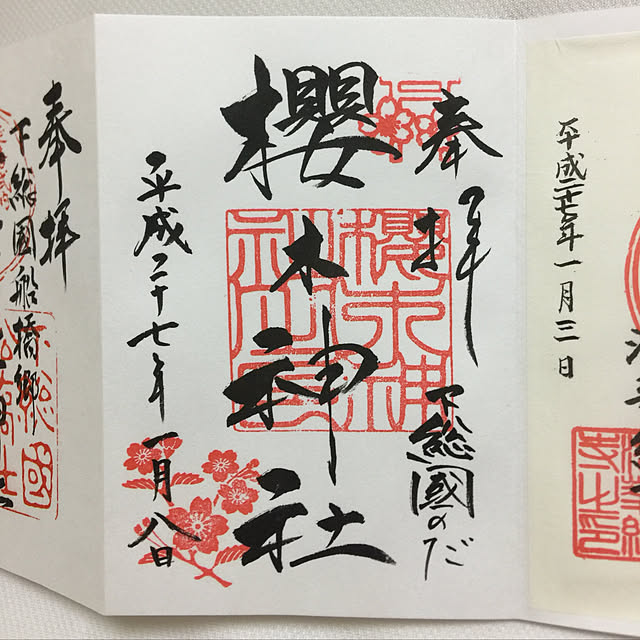 平成二十七年一月三日
奉拝
下総國のだ
櫻木神社
櫻木神社之印
平成二十七年 一月八日
奉拝
下総國船橋郷